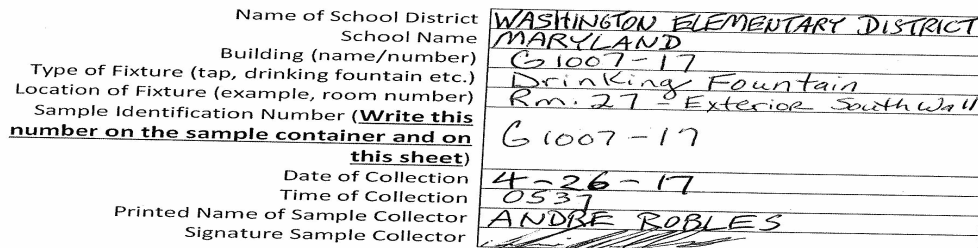 Name of School District WASHINGTON ELEMENTARY DISTRICT
School Name MARYLAND
Building (name/number) G1007-17
Type of Fixture (tap, drinking fountain etc.) Drinking Fountain
Location of Fixture (example, room number) Rm. 27 - Exterior South Wall
Sample Identification Number (Write this
number on the sample container and on G1007-17
this sheet)
Date of Collection 4-26-17
Time of Collection 0537
Printed Name of Sample Collector ANDRE ROBLES
Signature Sample Collector